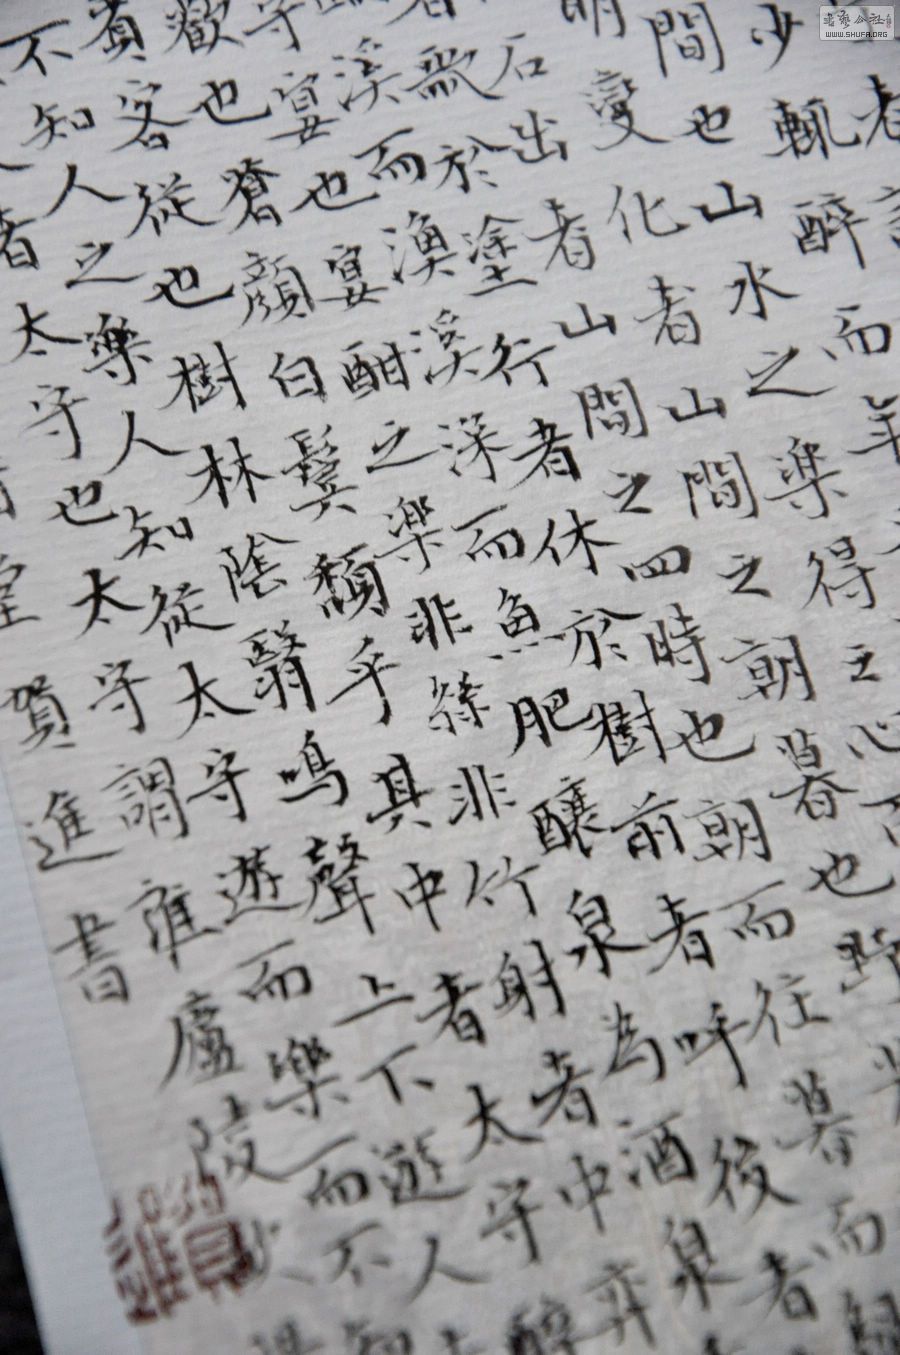 少輒醉而年
間也山水之樂得之心而
明變化者山間之朝暮也野
石出者山間之四時也朝而往暮而歸
衆於塗行者休於樹前者呼後者
溪而漁溪深而魚肥釀泉為酒泉
守宴也宴酣之樂非絲非竹射者中弈
歡也蒼顏白鬢頹乎其中者太守醉
賓客從也樹林陰翳鳴聲上下遊人去
不知人之樂人知從太守遊而樂而不知
者太守也太守謂誰廬陵
賀進書
書藝公社
WWW.SHUFA.ORG